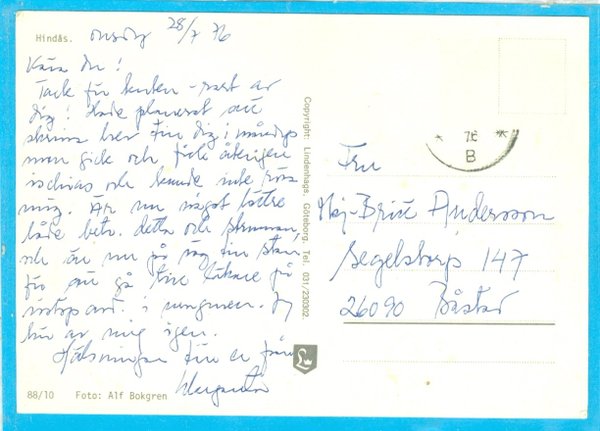 Hindås. onsdag 28/7 76
Kära du!
Tack för kortet - rart av
dig! Hade planerat att
skriva brev till dig i måndags
men gick och fick återigen
ischias och kunde inte röra
mig. Är nu något bättre
både betr. detta och
och är nu på väg till stan
för att gå till läkare på
i morgon. Jag
hör av mig igen.
Hälsningar till er från
Margareta
88/10 Foto: Alf Bokgren
Copyright: Lindenhags, Göteborg. Tel. 031/230302.
* 76 *
B
Fru
Maj-Britt Andersson
Segelstorp 147
26090 Båstad